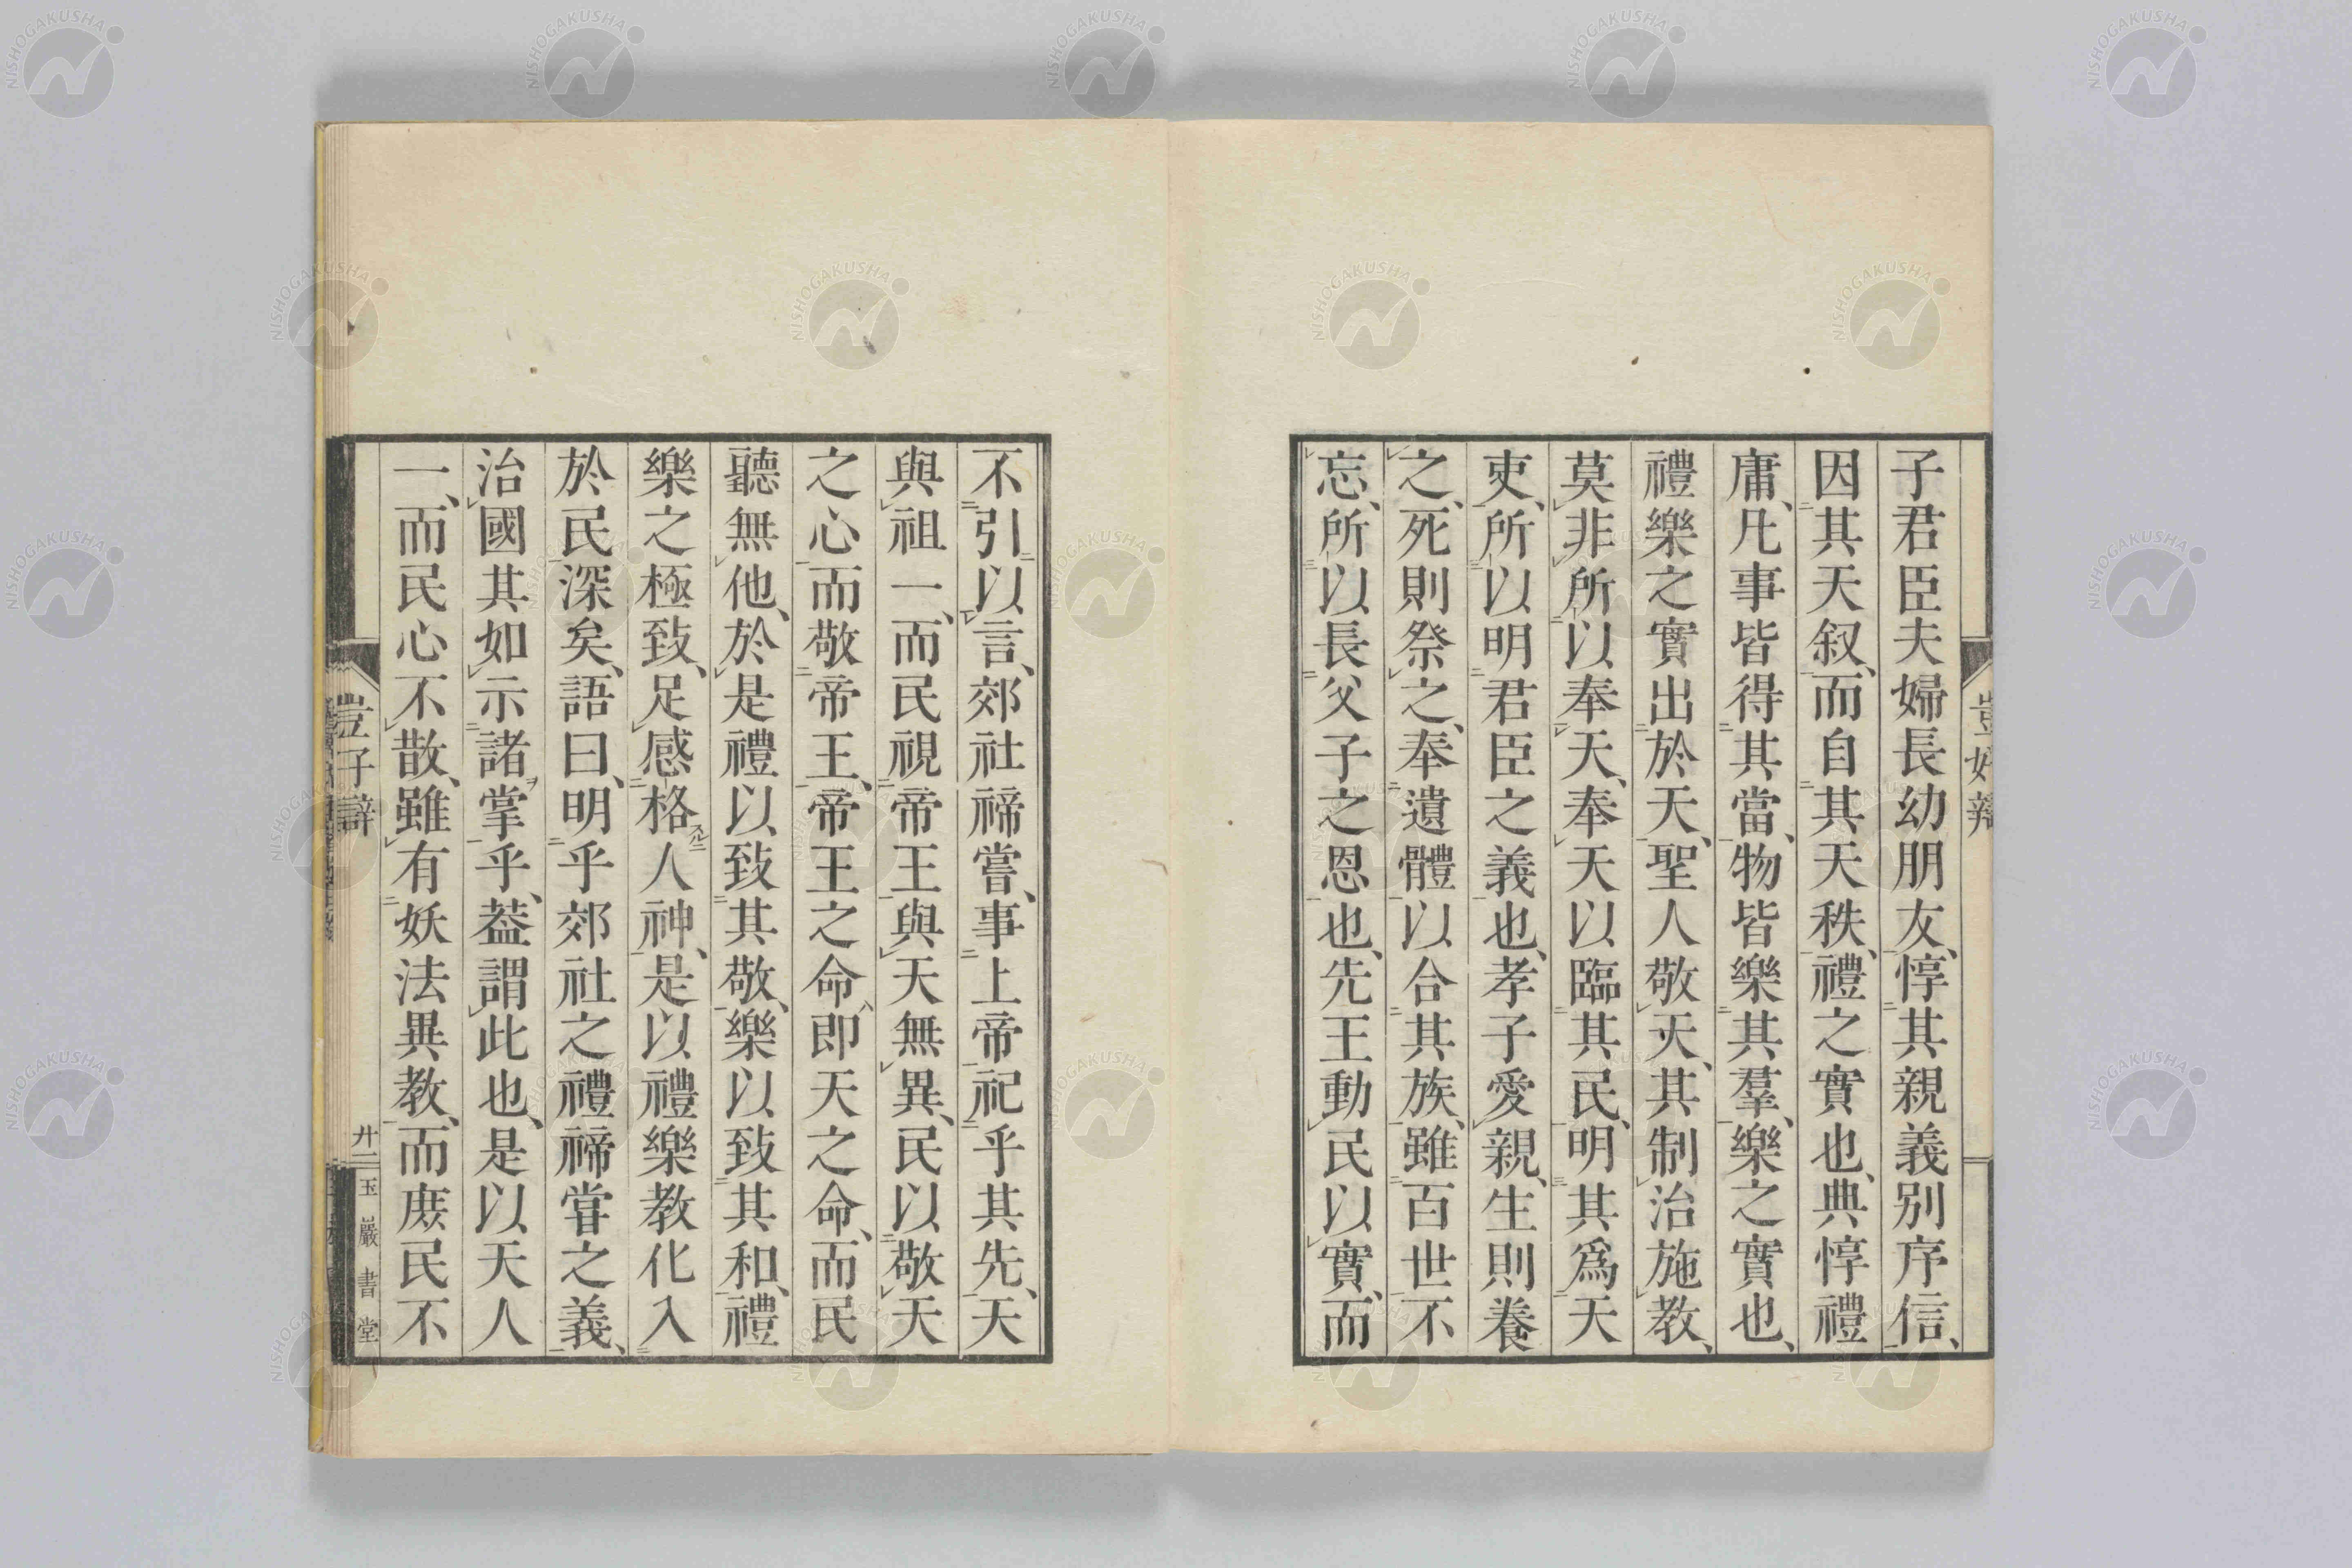 子君臣夫婦長幼朋友、惇其親義別序信、
因其天叙、而自其天秩、禮之實也、典惇禮
庸、凡事皆得其當、物皆樂其羣、樂之實也、
禮樂之實出於天、聖人敬天、其制治施教、
莫非所以奉天、奉天以臨其民、明其爲天
吏、所以明君臣之義也、孝子愛親、生則養
之、死則祭之、奉遺體以合其族、雖百世不
忘、所以長父子之恩也、先王動民以實、而
不引以言、郊社禘嘗、事上帝祀乎其先、天
與祖一、而民視帝王與天無異、民以敬天
之心而敬帝王、帝王之命、即天之命、而民
聽無他、於是禮以致其敬、樂以致其和、禮
樂之極致、足感格人神、是以禮樂教化入
於民深矣、語曰、明乎郊社之禮禘嘗之義、
治國其如示諸掌乎、葢謂此也、是以天人
一、而民心不散、雖有妖法異教、而庶民不
豈好辯
廾一
玉巖書堂
NISHOGAKUSHA